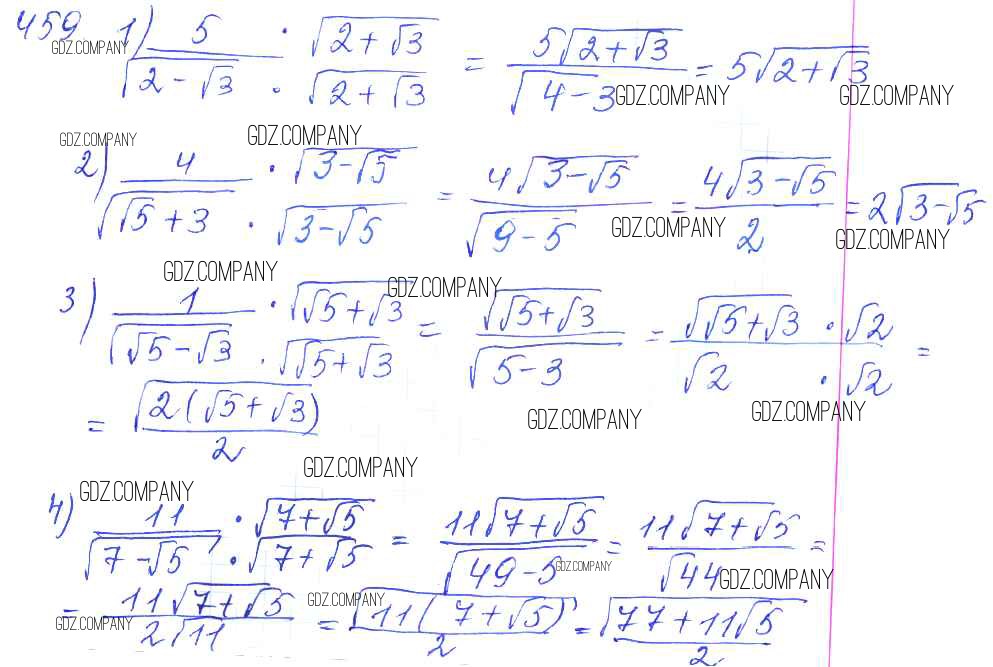 459 1) 5/√(2 - √3) · √(2 + √3)/√(2 + √3) = 5√(2 + √3)/√(4 - 3) = 5√(2 + √3)
GDZ.COMPANY GDZ.COMPANY GDZ.COMPANY
GDZ.COMPANY GDZ.COMPANY
2) 4/√(√5 + 3) · √(3 - √5)/√(3 - √5) = 4√(3 - √5)/√(9 - 5) = 4√(3 - √5)/2 = 2√(3 - √5)
GDZ.COMPANY GDZ.COMPANY
GDZ.COMPANY GDZ.COMPANY
3) 1/√(√5 - √3) · √(√5 + √3)/√(√5 + √3) = √(√5 + √3)/√(5 - 3) = √(√5 + √3)/√2 · √2/√2 =
= √(2(√5 + √3))/2
GDZ.COMPANY GDZ.COMPANY
GDZ.COMPANY GDZ.COMPANY
4) 11/√(7 - √5) · √(7 + √5)/√(7 + √5) = 11√(7 + √5)/√(49 - 5) = 11√(7 + √5)/√44 =
GDZ.COMPANY GDZ.COMPANY
= 11√(7 + √5)/2√11 = √(11(7 + √5))/2 = √(77 + 11√5)/2
GDZ.COMPANY GDZ.COMPANY